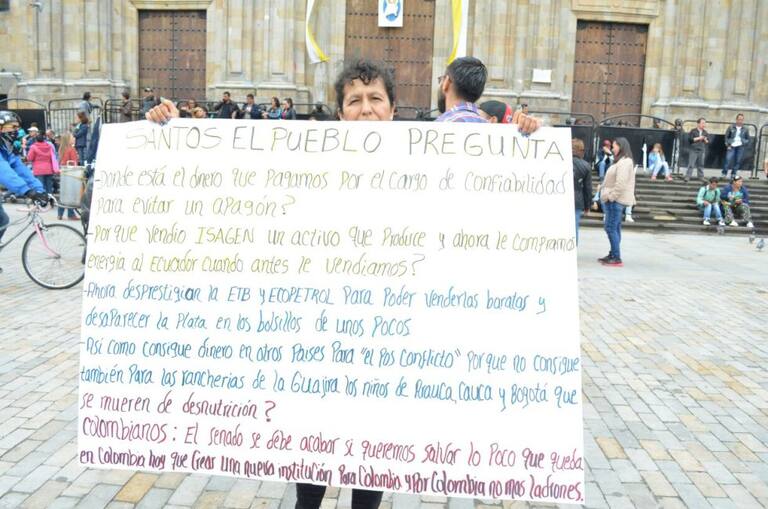 SANTOS EL PUEBLO PREGUNTA
-Donde está el dinero que pagamos por el cargo de confiabilidad
para evitar un apagón?
-Por que vendio ISAGEN un activo que produce y ahora le compramos
energía al Ecuador cuando antes le vendiamos?
-Ahora desprestigian la ETB y ECOPETROL para poder venderlas baratas y
desaparecer la plata en los bolsillos de unos pocos
-Asi como consigue dinero en otros paises para "el pos conflicto" porque no consigue
también para las rancherias de la Guajira los niños de Arauca, Cauca y Bogotá que
se mueren de desnutrición?
Colombianos: El senado se debe acabar si queremos salvar lo poco que queda
en Colombia hay que crear una nueva institución para Colombia y por Colombia no mas ladrones.